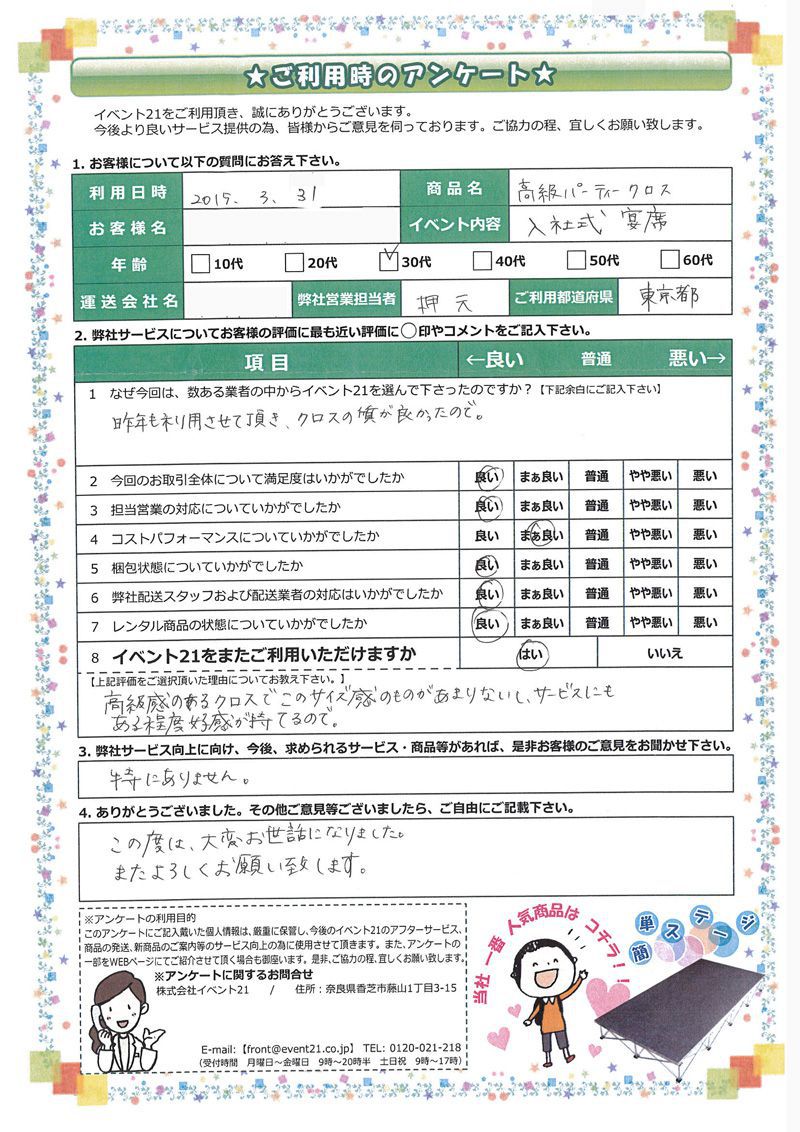 ★ご利用時のアンケート★
イベント21をご利用頂き、誠にありがとうございます。
今後より良いサービス提供の為、皆様からご意見を伺っております。ご協力の程、宜しくお願い致します。
1. お客様について以下の質問にお答え下さい。
利用日時 2015. 3. 31 商品名 高級パーティークロス
お客様名 イベント内容 入社式 宴席
年齢 10代 20代 30代 40代 50代 60代
運送会社名 弊社営業担当者 押元 ご利用都道府県 東京都
2. 弊社サービスについてお客様の評価に最も近い評価に○印やコメントをご記入下さい。
項目 ←良い 普通 悪い→
1 なぜ今回は、数ある業者の中からイベント21を選んで下さったのですか？【下記余白にご記入下さい】
昨年も利用させて頂き、クロスの質が良かったので。
2 今回のお取引全体について満足度はいかがでしたか 良い まぁ良い 普通 やや悪い 悪い
3 担当営業の対応についていかがでしたか 良い まぁ良い 普通 やや悪い 悪い
4 コストパフォーマンスについていかがでしたか 良い まぁ良い 普通 やや悪い 悪い
5 梱包状態についていかがでしたか 良い まぁ良い 普通 やや悪い 悪い
6 弊社配送スタッフおよび配送業者の対応はいかがでしたか 良い まぁ良い 普通 やや悪い 悪い
7 レンタル商品の状態についていかがでしたか 良い まぁ良い 普通 やや悪い 悪い
8 イベント21をまたご利用いただけますか はい いいえ
【上記評価をご選択頂いた理由についてお教え下さい。】
高級感のあるクロスでこのサイズ感のものがあまりないし、サービスにも
ある程度好感が持てるので。
3. 弊社サービス向上に向け、今後、求められるサービス・商品等があれば、是非お客様のご意見をお聞かせ下さい。
特にありません。
4. ありがとうございました。その他ご意見等ございましたら、ご自由にご記載下さい。
この度は、大変お世話になりました。
またよろしくお願い致します。
※アンケートの利用目的
このアンケートにご記入戴いた個人情報は、厳重に保管し、今後のイベント21のアフターサービス、
商品の発送、新商品のご案内等のサービス向上の為に使用させて頂きます。また、アンケートの
一部をWEBページにてご紹介させて頂く場合も御座います。是非、ご協力の程、宜しくお願い致します。
※アンケートに関するお問合せ
株式会社イベント21 / 住所：奈良県香芝市藤山1丁目3-15
E-mail:【front@event21.co.jp】 TEL: 0120-021-218
（受付時間 月曜日～金曜日 9時～20時半 土日祝 9時～17時）
当社一番人気商品はコチラ！！
簡単ステージ